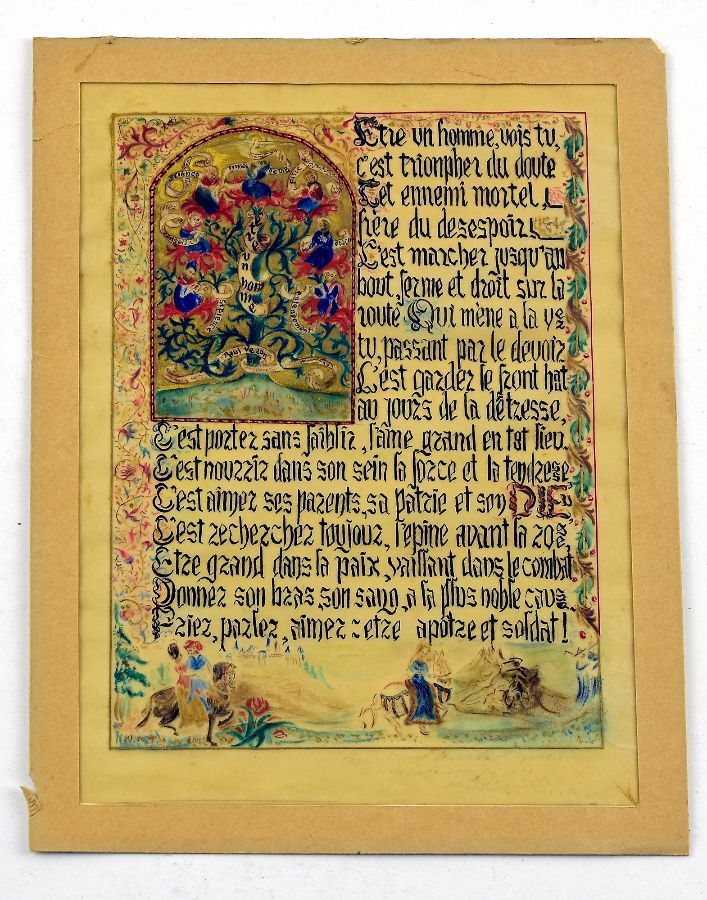 Etre vn homme, vois tu,
c'est triompher du doute
Cet ennemi mortel,
frère du desespoir
C'est marcher jusqu'au
bout, ferme et droit sur la
route Qui mène a la ver
tu, passant par le devoir
C'est garder le front hat
au jours de la détresse,
C'est porter sans faiblir, l'âme grand en tot lieu.
C'est nourrir dans son sein la force et la tendrese
C'est aimer ses parents, sa pâtrie et son DIE
C'est rechercher toujour, l'epine avant la roze
Etre grand dans la paix, vaillant dans le combat
Donner son bras, son sang, a la plus noble caus
Prier, parler, aimer : etre apôtre et soldat!
etre vn homme